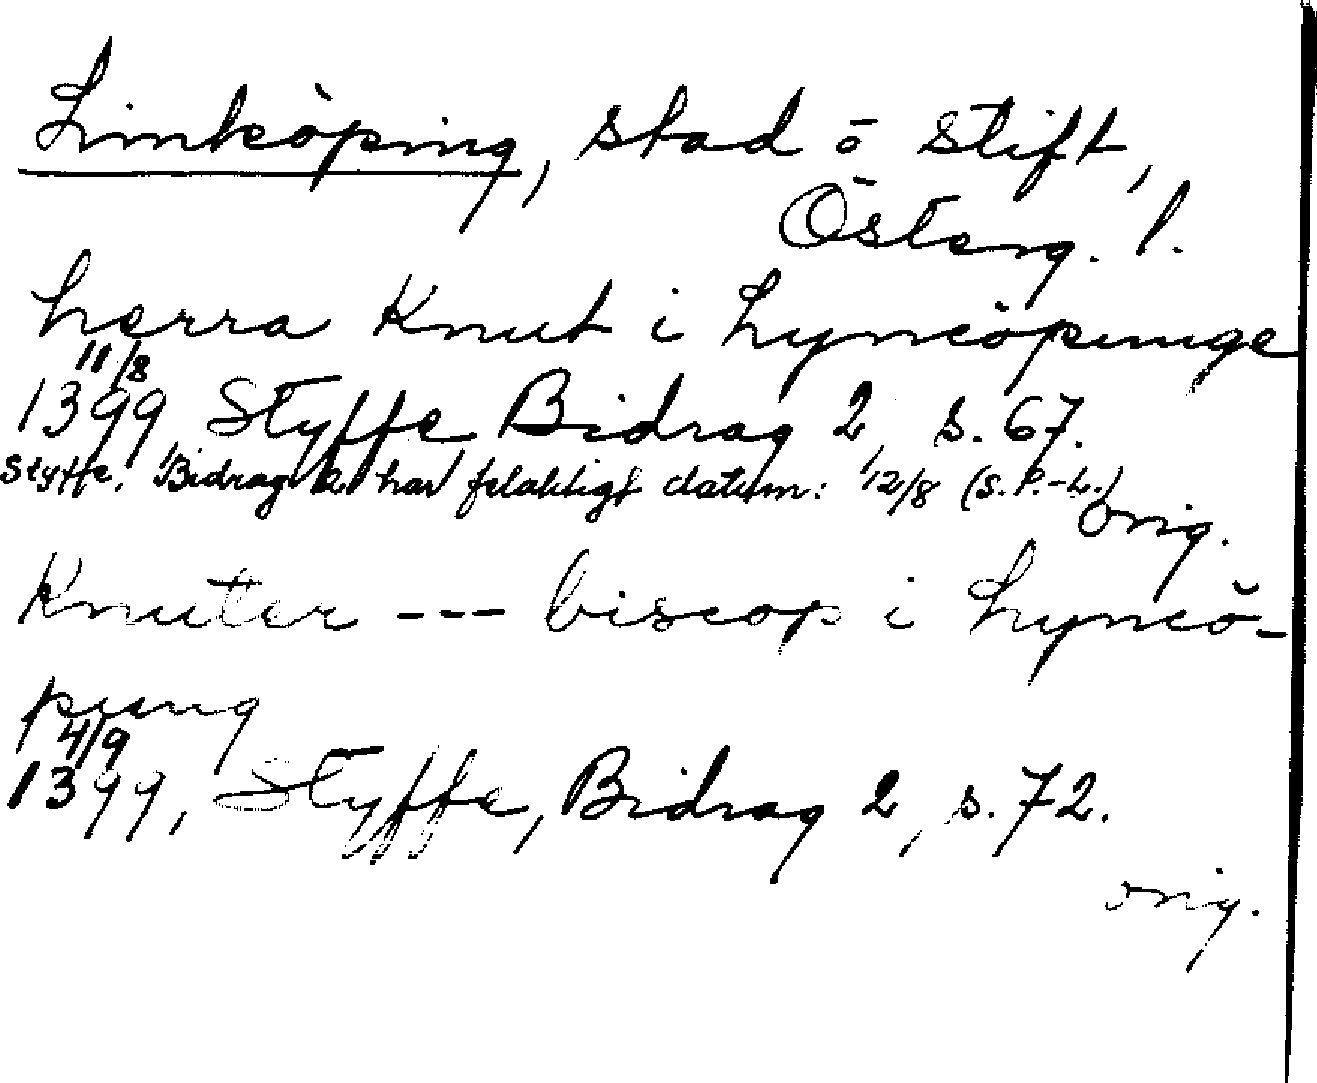 Linköping, stad o stift,
Österg. l.
herra Knut i Lyncöpunge
11/8
1399 Styffe Bidrag 2, s. 67.
Styffe, Bidrag 2. har felaktigt datum: 12/8 (S. P.-L.)
orig.
Knuter --- biscop i Lyncö-
pung
4/9
1399, Styffe, Bidrag 2, s. 72.
orig.